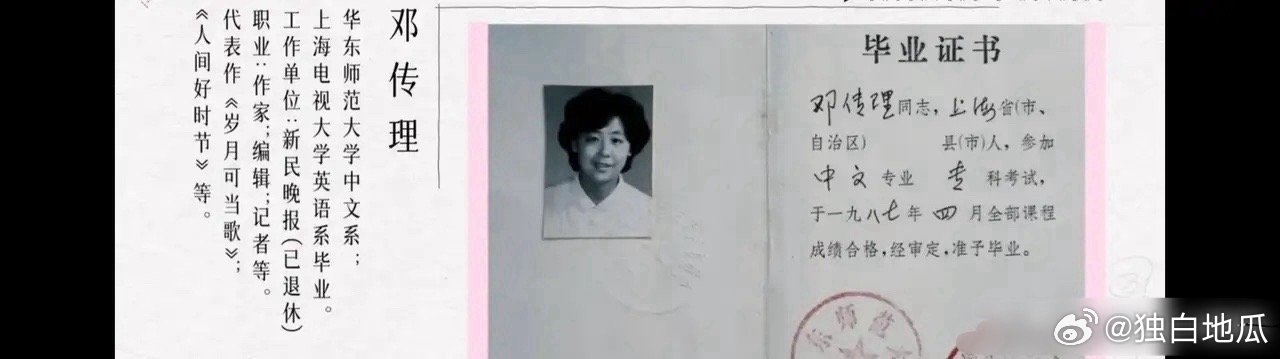 邓传理
华东师范大学中文系；
上海电视大学英语系毕业。
工作单位：新民晚报（已退休）
职业：作家；编辑；记者等。
代表作《岁月可当歌》；
《人间好时节》等。
毕业证书
邓传理同志，上海省（市、
自治区） 县（市）人，参加
中文专业 专 科考试，
于一九八七年 四 月全部课程
成绩合格，经审定，准予毕业。
东师范
@独白地瓜